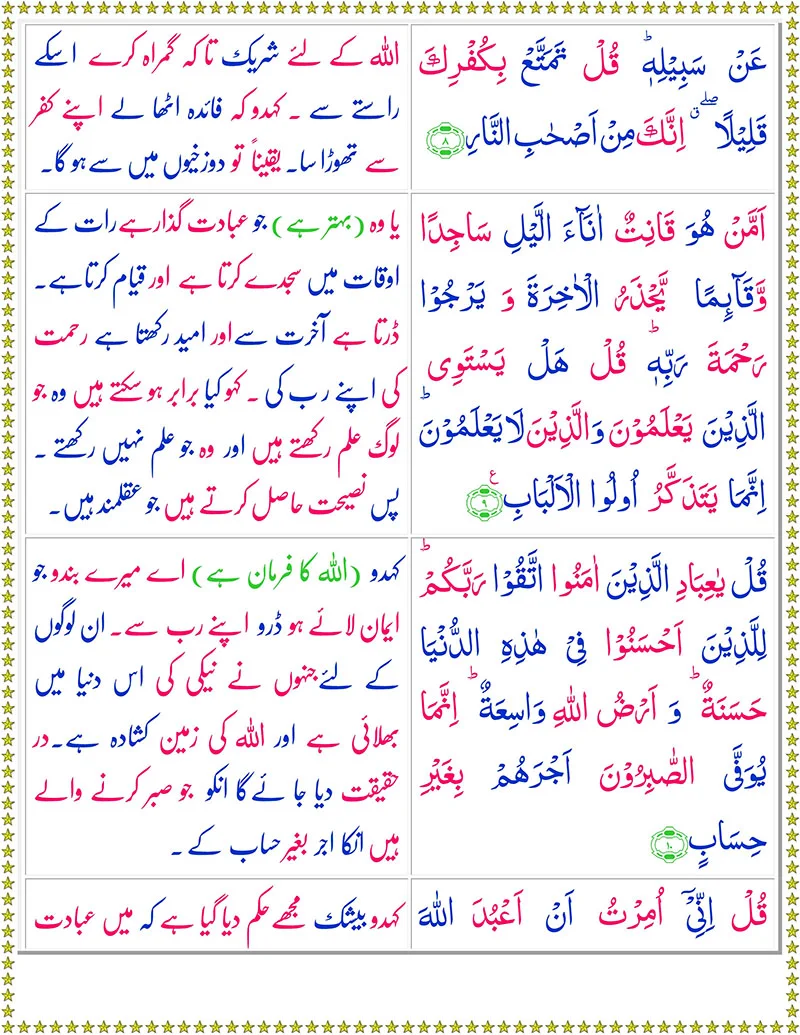 عَنْ سَبِيْلِهٖ ؕ قُلْ تَمَتَّعْ بِكُفْرِكَ
قَلِيْلًا ۖ ۗ اِنَّكَ مِنْ اَصْحٰبِ النَّارِ ۸
اللہ کے لئے شریک تاکہ گمراہ کرے اسکے
راستے سے ۔ کہدو کہ فائدہ اٹھا لے اپنے کفر
سے تھوڑا سا۔ یقیناً تو دوزخیوں میں سے ہو گا۔
اَمَّنْ هُوَ قَانِتٌ اٰنَآءَ الَّيْلِ سَاجِدًا
وَّقَآئِمًا يَّحْذَرُ الْاٰخِرَةَ وَ يَرْجُوْا
رَحْمَةَ رَبِّهٖ ؕ قُلْ هَلْ يَسْتَوِى
الَّذِيْنَ يَعْلَمُوْنَ وَالَّذِيْنَ لَا يَعْلَمُوْنَ ؕ
اِنَّمَا يَتَذَكَّرُ اُولُوا الْاَلْبَابِ ۹ ع
یا وہ (بہتر ہے) جو عبادت گذار ہے رات کے
اوقات میں سجدے کرتا ہے اور قیام کرتا ہے۔
ڈرتا ہے آخرت سے اور امید رکھتا ہے رحمت
کی اپنے رب کی ۔ کہو کیا برابر ہو سکتے ہیں وہ جو
لوگ علم رکھتے ہیں اور وہ جو علم نہیں رکھتے ۔
پس نصیحت حاصل کرتے ہیں جو عقلمند ہیں۔
قُلْ يٰعِبَادِ الَّذِيْنَ اٰمَنُوا اتَّقُوْا رَبَّكُمْ ؕ
لِلَّذِيْنَ اَحْسَنُوْا فِىْ هٰذِهِ الدُّنْيَا
حَسَنَةٌ ؕ وَ اَرْضُ اللّٰهِ وَاسِعَةٌ ؕ اِنَّمَا
يُوَفَّى الصّٰبِرُوْنَ اَجْرَهُمْ بِغَيْرِ
حِسَابٍ ۱۰
کہدو (اللہ کا فرمان ہے) اے میرے بندو جو
ایمان لائے ہو ڈرو اپنے رب سے۔ ان لوگوں
کے لئے جنہوں نے نیکی کی اس دنیا میں
بھلائی ہے اور اللہ کی زمین کشادہ ہے۔در
حقیقت دیا جائے گا انکو جو صبر کرنے والے
ہیں انکا اجر بغیر حساب کے ۔
قُلْ اِنِّىْۤ اُمِرْتُ اَنْ اَعْبُدَ اللّٰهَ
کہدو بیشک مجھے حکم دیا گیا ہے کہ میں عبادت